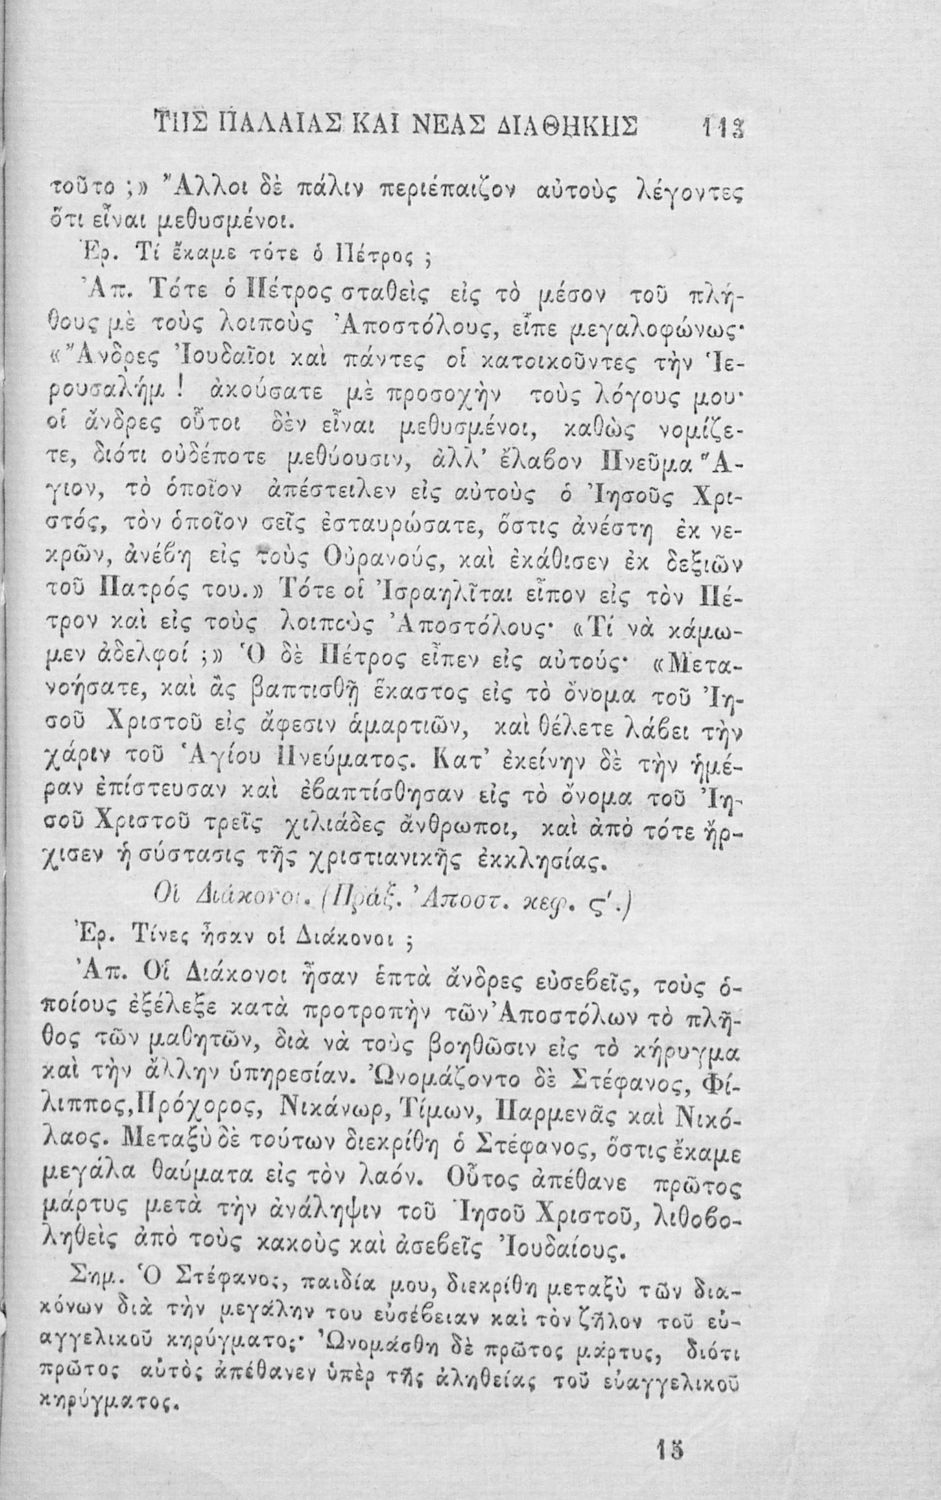 ΤΗΣ ΠΑΛΑΙΑΣ ΚΑΙ ΝΕΑΣ ΔΙΑΘΗΚΗΣ 113
τοῦτο ;» Ἄλλοι δὲ πάλιν περιέπαιζον αὐτοὺς λέγοντες
ὅτι εἶναι μεθυσμένοι.
Ἐρ. Τί ἔκαμε τότε ὁ Πέτρος ;
Ἀπ. Τότε ὁ Πέτρος σταθεὶς εἰς τὸ μέσον τοῦ πλή-
θους μὲ τοὺς λοιποὺς Ἀποστόλους, εἶπε μεγαλοφώνως·
«Ἄνδρες Ἰουδαῖοι καὶ πάντες οἱ κατοικοῦντες τὴν Ἱε-
ρουσαλήμ ! ἀκούσατε μὲ προσοχὴν τοὺς λόγους μου·
οἱ ἄνδρες οὗτοι δὲν εἶναι μεθυσμένοι, καθὼς νομίζε-
τε, διότι οὐδέποτε μεθύουσιν, ἀλλ’ ἔλαβον Πνεῦμα Ἅ-
γιον, τὸ ὁποῖον ἀπέστειλεν εἰς αὐτοὺς ὁ Ἰησοῦς Χρι-
στός, τὸν ὁποῖον σεῖς ἐσταυρώσατε, ὅστις ἀνέστη ἐκ νε-
κρῶν, ἀνέβη εἰς τοὺς Οὐρανούς, καὶ ἐκάθισεν ἐκ δεξιῶν
τοῦ Πατρός του.» Τότε οἱ Ἰσραηλῖται εἶπον εἰς τὸν Πέ-
τρον καὶ εἰς τοὺς λοιποὺς Ἀποστόλους· «Τί νὰ κάμω-
μεν ἀδελφοί ;» Ὁ δὲ Πέτρος εἶπεν εἰς αὐτούς· «Μετα-
νοήσατε, καὶ ἂς βαπτισθῇ ἕκαστος εἰς τὸ ὄνομα τοῦ Ἰη-
σοῦ Χριστοῦ εἰς ἄφεσιν ἁμαρτιῶν, καὶ θέλετε λάβει τὴν
χάριν τοῦ Ἁγίου Πνεύματος. Κατ’ ἐκείνην δὲ τὴν ἡμέ-
ραν ἐπίστευσαν καὶ ἐβαπτίσθησαν εἰς τὸ ὄνομα τοῦ Ἰη-
σοῦ Χριστοῦ τρεῖς χιλιάδες ἄνθρωποι, καὶ ἀπὸ τότε ἤρ-
χισεν ἡ σύστασις τῆς χριστιανικῆς ἐκκλησίας.
Οἱ Διάκονοι. (Πράξ. Ἀποστ. κεφ. ς′.)
Ἐρ. Τίνες ἦσαν οἱ Διάκονοι ;
Ἀπ. Οἱ Διάκονοι ἦσαν ἑπτὰ ἄνδρες εὐσεβεῖς, τοὺς ὁ-
ποίους ἐξέλεξε κατὰ προτροπὴν τῶν Ἀποστόλων τὸ πλῆ-
θος τῶν μαθητῶν, διὰ νὰ τοὺς βοηθῶσιν εἰς τὸ κήρυγμα
καὶ τὴν ἄλλην ὑπηρεσίαν. Ὠνομάζοντο δὲ Στέφανος, Φί-
λιππος, Πρόχορος, Νικάνωρ, Τίμων, Παρμενᾶς καὶ Νικό-
λαος. Μεταξὺ δὲ τούτων διεκρίθη ὁ Στέφανος, ὅστις ἔκαμε
μεγάλα θαύματα εἰς τὸν λαόν. Οὗτος ἀπέθανε πρῶτος
μάρτυς μετὰ τὴν ἀνάληψιν τοῦ Ἰησοῦ Χριστοῦ, λιθοβο-
ληθεὶς ἀπὸ τοὺς κακοὺς καὶ ἀσεβεῖς Ἰουδαίους.
Σημ. Ὁ Στέφανος, παιδία μου, διεκρίθη μεταξὺ τῶν δια-
κόνων διὰ τὴν μεγάλην του εὐσέβειαν καὶ τὸν ζῆλον τοῦ εὐ-
αγγελικοῦ κηρύγματος· Ὠνομάσθη δὲ πρῶτος μάρτυς, διότι
πρῶτος αὐτὸς ἀπέθανεν ὑπὲρ τῆς ἀληθείας τοῦ εὐαγγελικοῦ
κηρύγματος.
15